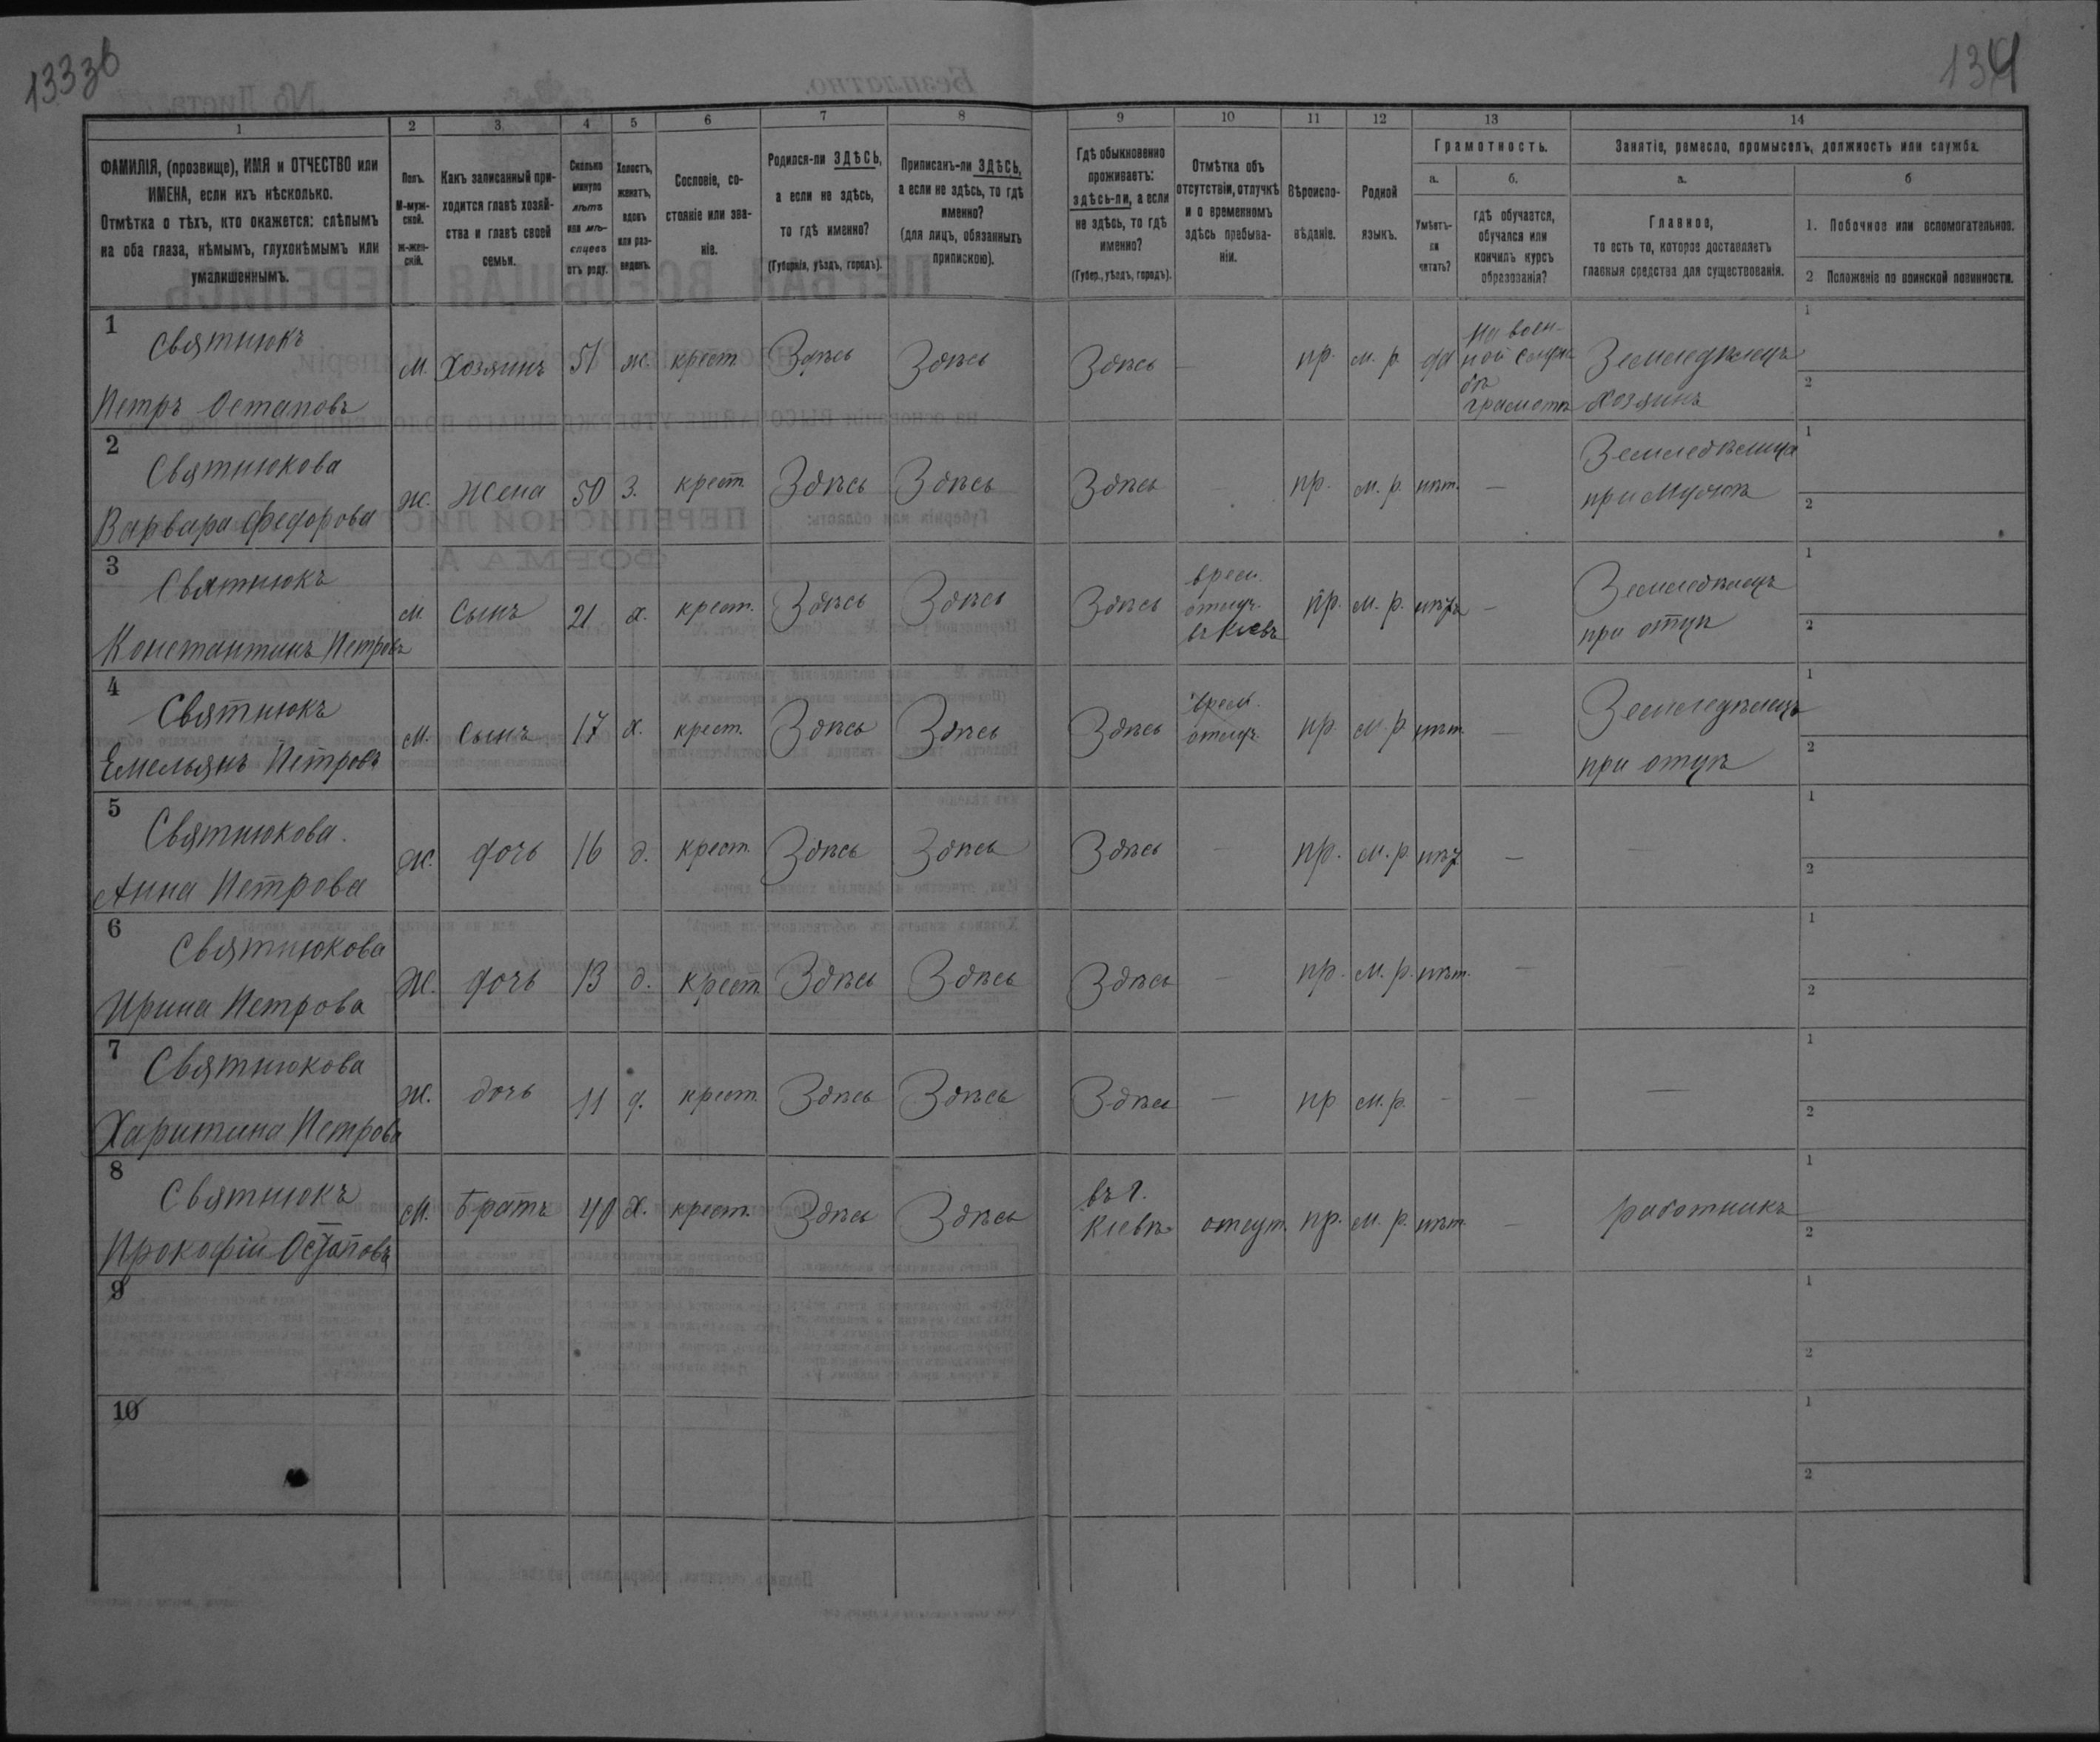 133зб
134
1 2 3 4 5 6 7 8 9 10 11 12 13 14
ФАМИЛІЯ, (прозвище), ИМЯ и ОТЧЕСТВО или
ИМЕНА, если ихъ нѣсколько.
Отмѣтка о тѣхъ, кто окажется: слѣпымъ
на оба глаза, нѣмымъ, глухонѣмымъ или
умалишеннымъ.
Полъ.
М-муж-
ской.
ж-жен-
скій.
Какъ записанный при-
ходится главѣ хозяй-
ства и главѣ своей
семьи.
Сколько
минуло
лѣтъ
или мѣ-
сяцевъ
отъ роду.
Холостъ,
женатъ,
вдовъ
или раз-
веденъ.
Сословіе, со-
стояніе или зва-
ніе.
Родился-ли ЗДѢСЬ,
а если не здѣсь,
то гдѣ именно?
(Губернія, уѣздъ, городъ).
Приписанъ-ли ЗДѢСЬ,
а если не здѣсь, то гдѣ
именно?
(для лицъ, обязанныхъ
припискою).
Гдѣ обыкновенно
проживаетъ:
здѣсь-ли, а если
не здѣсь, то гдѣ
именно?
(Губер., уѣздъ, городъ).
Отмѣтка объ
отсутствіи, отлучкѣ
и о временномъ
здѣсь пребыва-
ніи.
Вѣроиспо-
вѣданіе.
Родной
языкъ.
Грамотность.
а.
Умѣетъ-
ли
читать?
б.
гдѣ обучается,
обучался или
кончилъ курсъ
образованія?
Занятіе, ремесло, промыселъ, должность или служба.
а.
Главное,
то есть то, которое доставляетъ
главныя средства для существованія.
б
1. Побочное или вспомогательное.
2 Положеніе по воинской повинности.
1 Святнюкъ
Петръ Остаповъ
М. Хозяинъ 51 ж. крест. Здѣсь Здѣсь Здѣсь — пр. м. р. да
на воен-
ной служ
бѣ
грамотѣ
Земледѣлецъ
хозяинъ
1
2
2 Святнюкова
Варвара Федорова
Ж. Жена 50 З. крест Здѣсь Здѣсь Здѣсь пр. м. р. нѣт. —
Земледѣлица
при мужѣ
1
2
3 Святнюкъ
Константинъ Петровъ
М. Сынъ 21 х. крест. Здѣсь Здѣсь Здѣсь
врем.
отлуч.
въ Кіевъ
пр. м. р. нѣтъ —
Земледѣлецъ
при отцѣ
1
2
4 Святнюкъ
Емельянъ Петровъ
М. Сынъ 17 х. крест. Здѣсь Здѣсь Здѣсь
врем.
отлуч.
пр. м. р. нѣт. —
Земледѣлецъ
при отцѣ
1
2
5 Святнюкова.
Анна Петрова
Ж. дочь 16 д. крест. Здѣсь Здѣсь Здѣсь — пр. м. р. нѣт — —
1
2
6 Святнюкова
Ирина Петрова
Ж. дочь 13 д. крест. Здѣсь Здѣсь Здѣсь — пр. м. р. нѣт. — —
1
2
7 Святнюкова
Харитина Петрова
Ж. дочь 11 д. крест. Здѣсь Здѣсь Здѣсь — пр м. р. — — —
1
2
8 Святнюкъ
Прокофій Остаповъ
М. Братъ 40 Х. крест. Здѣсь Здѣсь
въ г.
Кіевѣ
отсут. пр. м. р. нѣт. — работникъ
1
2
9
1
2
10
1
2